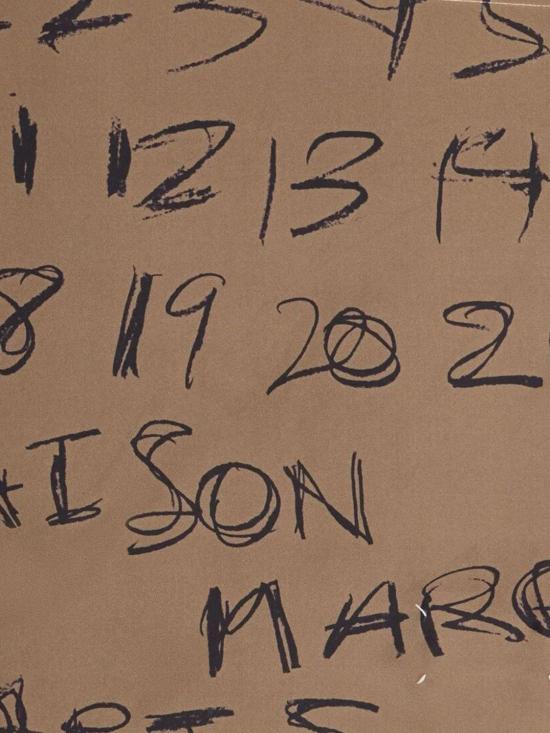 2 3 4 5
1 12 13 14
8 19 20 2
ISON
MAR